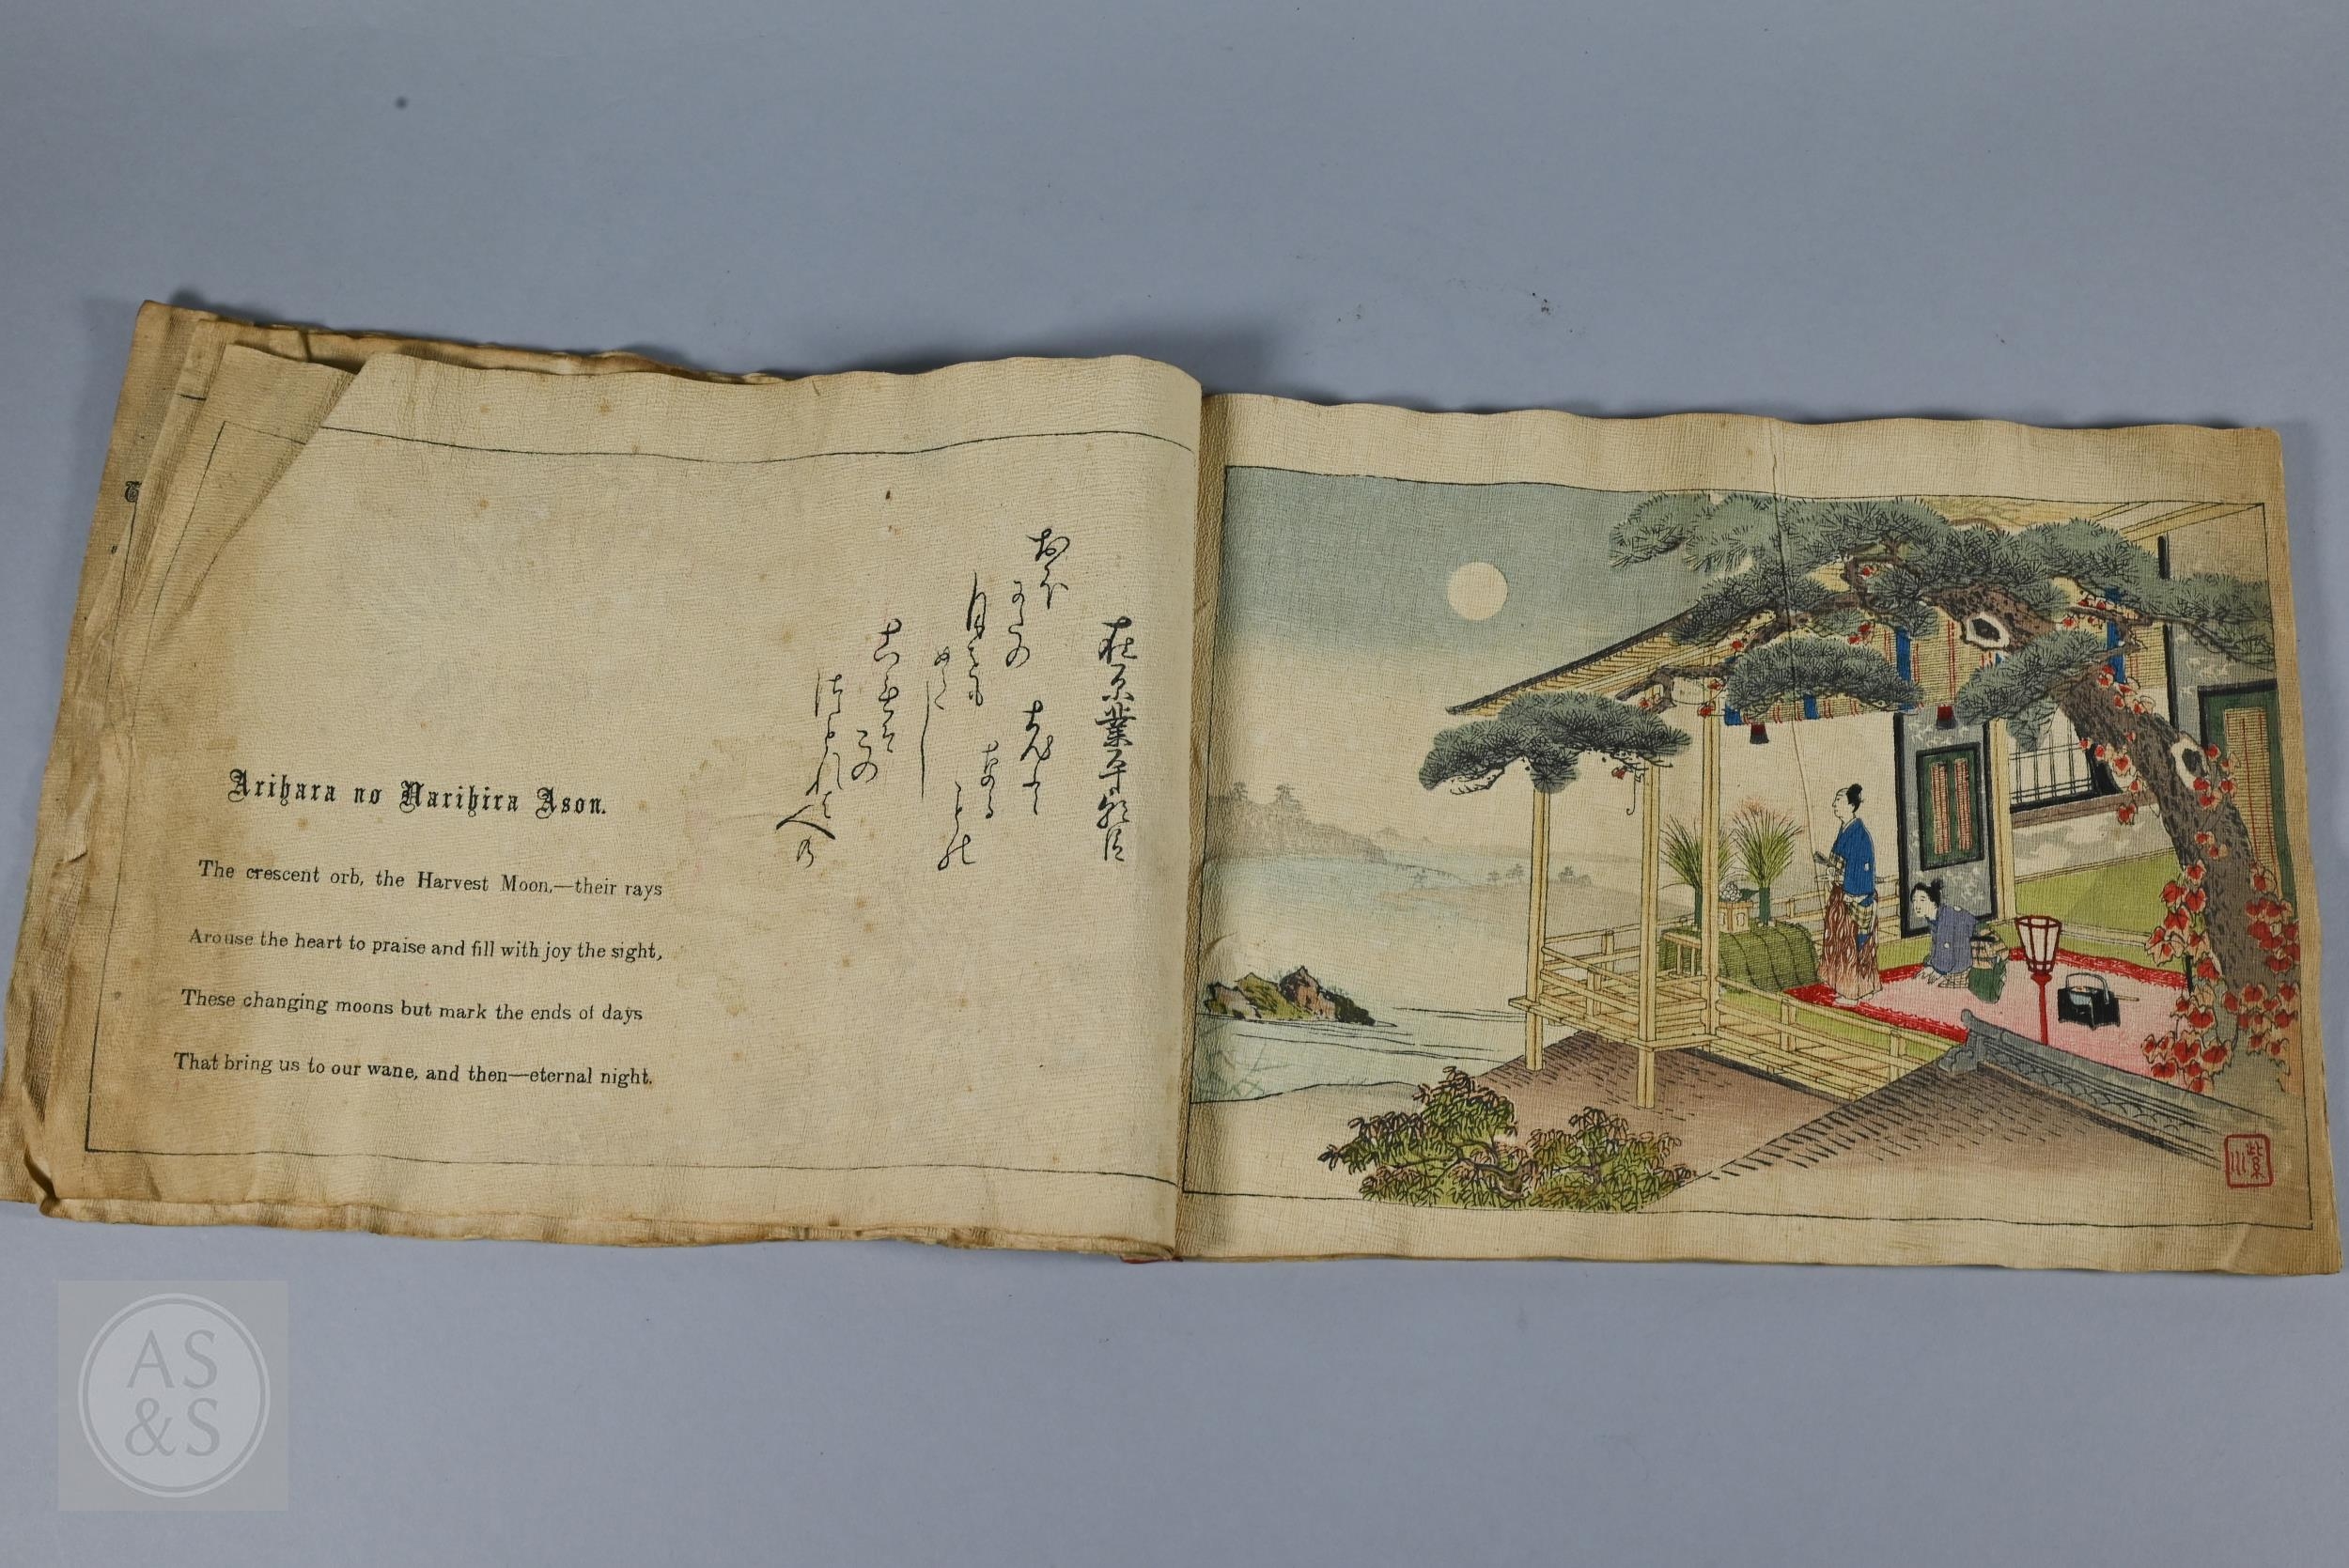 在原業平朝臣
おほ
月をも
めてし
この
つもれは
人の
なる
もの
Arihara no Narihira Ason.
The crescent orb, the Harvest Moon,—their rays
Arouse the heart to praise and fill with joy the sight,
These changing moons but mark the ends of days
That bring us to our wane, and then—eternal night.
AS
&S